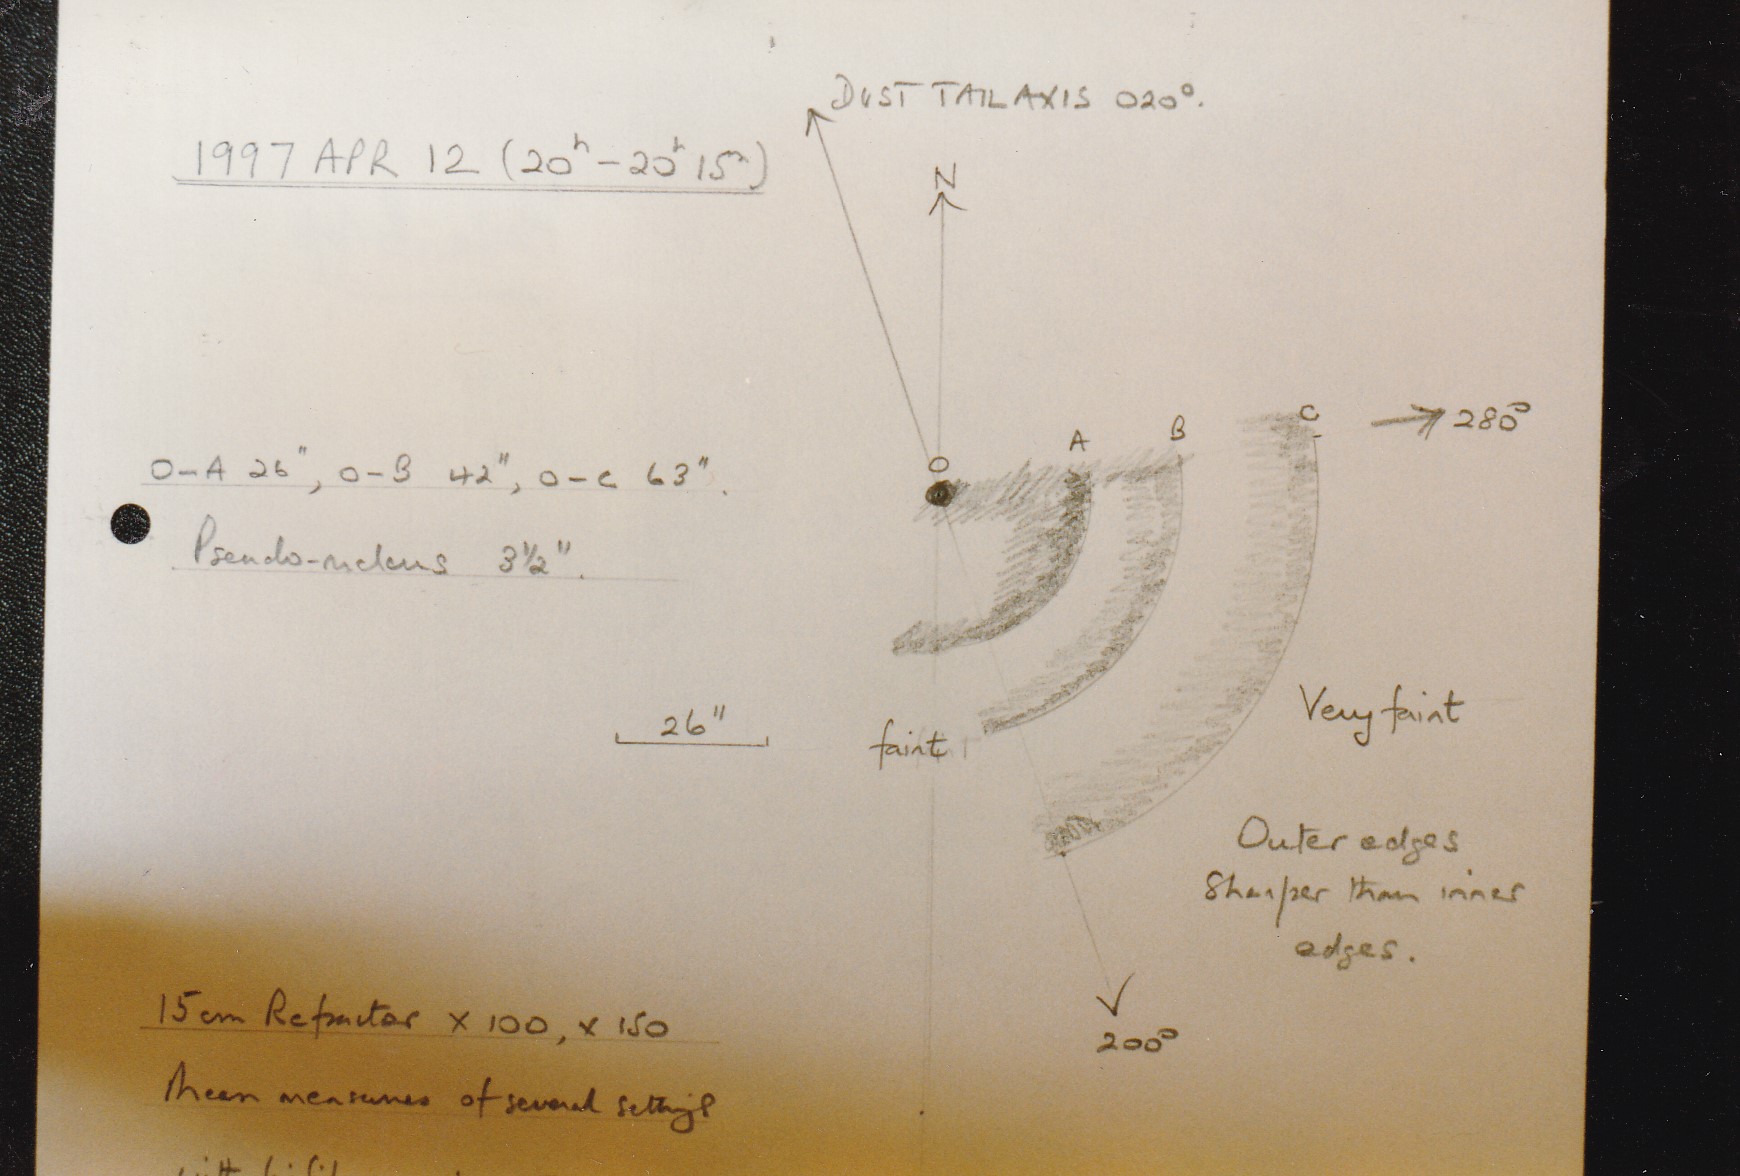 DUST TAIL AXIS 020°.
1997 APR 12 (20ʰ-20ʰ 15ᵐ)
N
280°
C
B
A
O
O-A 26", O-B 42", O-C 63".
Pseudo-nucleus 3½".
26"
faint
Very faint
Outer edges
Sharper than inner
edges.
15cm Refractor x 100, x 150
200°
Mean measures of several settings
with